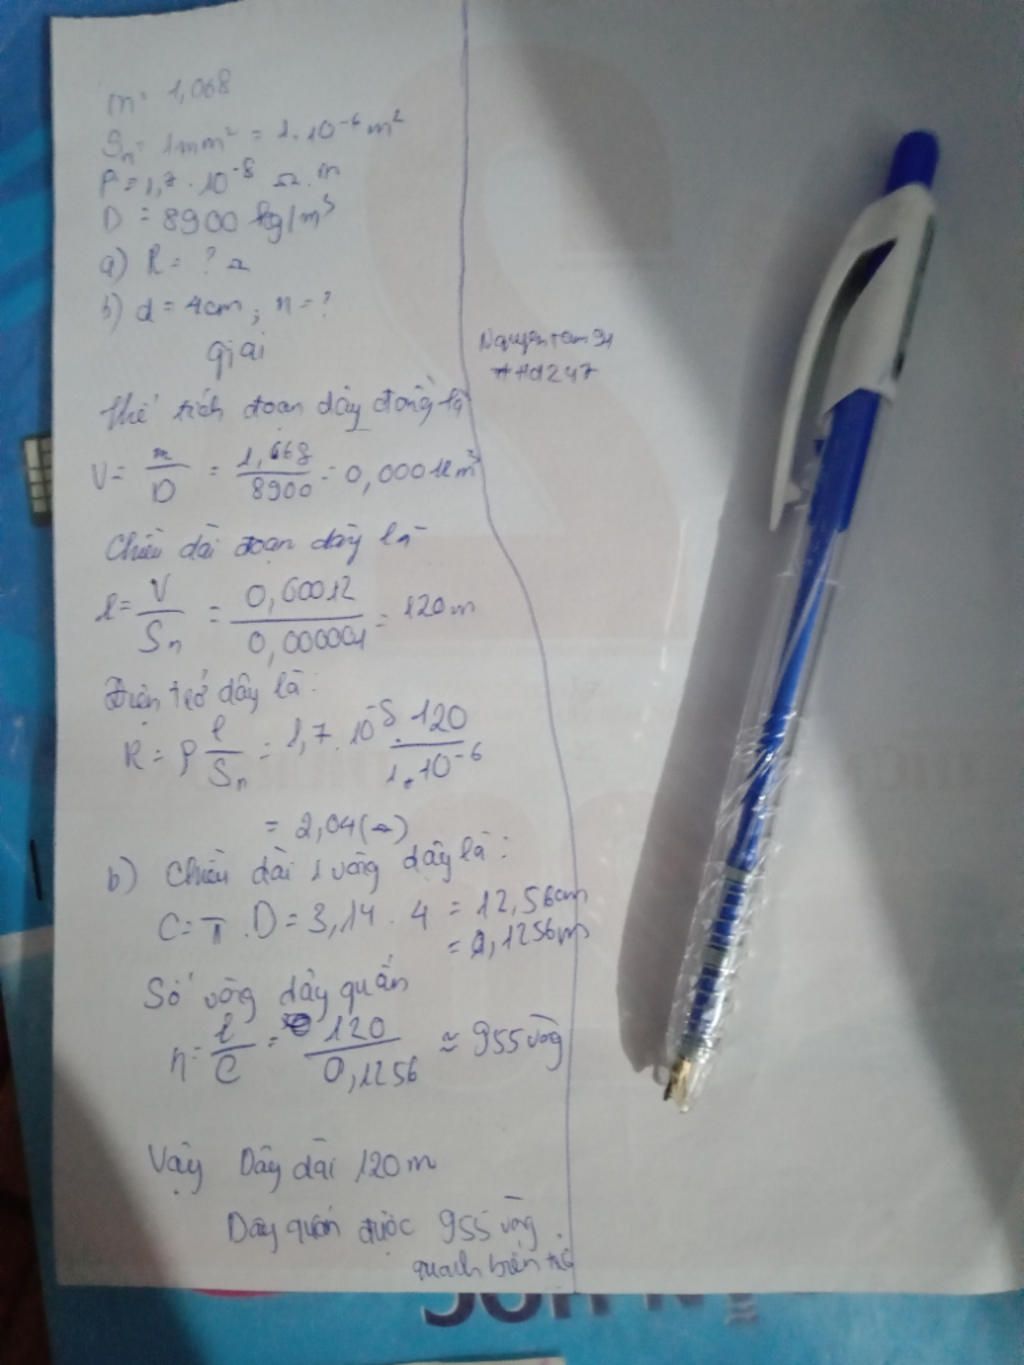 m = 1,068
Sn = 1mm² = 1.10⁻⁶ m²
ρ = 1,7 . 10⁻⁸ Ω.m
D = 8900 kg/m³
a) R = ? Ω
b) d = 4cm ; n = ?
giải
Thể tích đoạn dây đồng là
V = m/D = 1,068/8900 = 0,00012m³
Chiều dài đoạn dây là
l = V/Sn = 0,00012/0,000001 = 120m
Điện trở dây là:
R = ρ l/Sn = 1,7 . 10⁻⁸ . 120/1.10⁻⁶
= 2,04 (Ω)
b) Chiều dài 1 vòng dây là:
C = π . D = 3,14 . 4 = 12,56cm
= 0,1256m
Số vòng dây quấn
n = l/C = 120/0,1256 ≈ 955 vòng
Vậy Dây dài 120m
Dây quấn được 955 vòng
quanh biến trở
Nguyentam94
Hd247